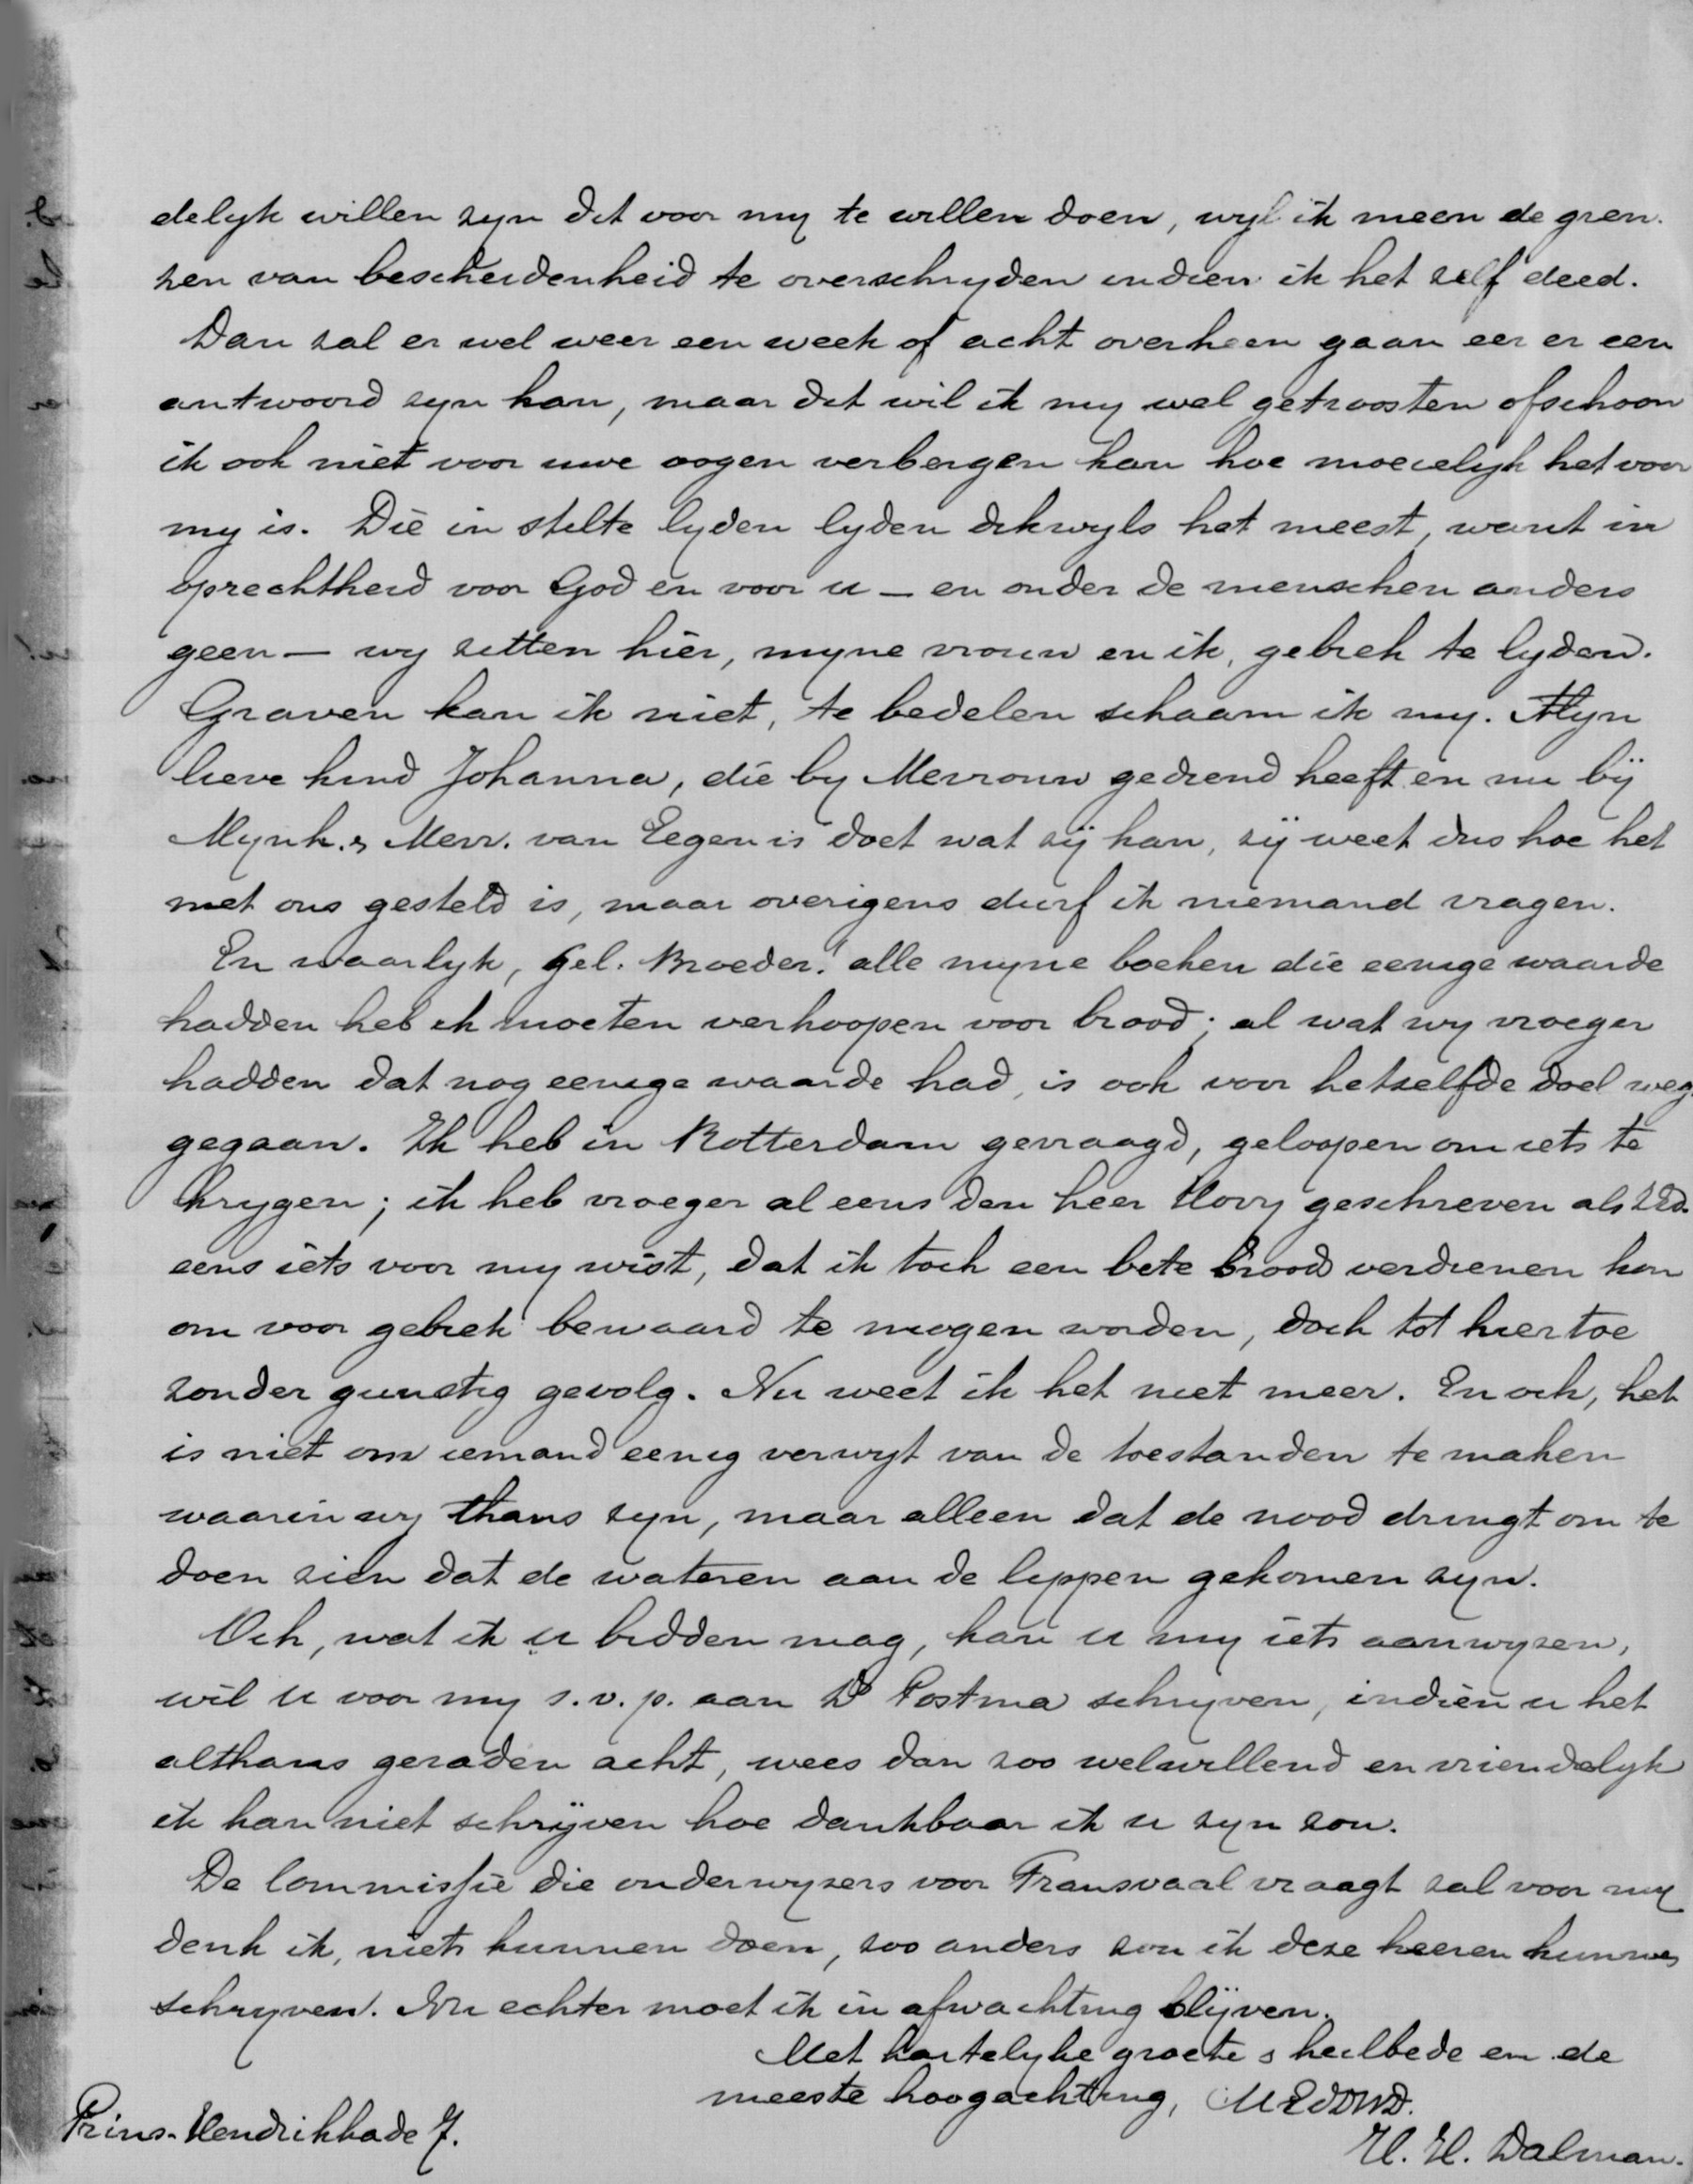 delyk willen zyn dit voor my te willen doen, wyl ik meen de gren-
zen van bescheidenheid te overschryden indien ik het zelf deed.
Dan zal er wel weer een week of acht overheen gaan eer er een
antwoord zyn kan, maar dit wil ik my wel getroosten ofschoon
ik ook niet voor uwe oogen verbergen kan hoe moeielyk het voor
my is. Die in stilte lyden lyden dikwyls het meest, want in
oprechtheid voor God en voor u — en onder de menschen anders
geen — wy zitten hier, myne vrouw en ik, gebrek te lyden.
Graven kan ik niet, te bedelen schaam ik my. Myn
lieve kind Johanna, die by Mevrouw gediend heeft en nu bij
Mynh. & Mevr. van Eegen is doet wat zij kan, zij weet dus hoe het
met ons gesteld is, maar overigens durf ik niemand vragen.
En waarlyk, Gel. Broeder! alle myne boeken die eenige waarde
hadden heb ik moeten verkoopen voor brood; al wat wy vroeger
hadden dat nog eenige waarde had, is ook voor hetzelfde doel weg-
gegaan. Ik heb in Rotterdam gevraagd, geloopen om iets te
krygen; ik heb vroeger al eens den heer Hovy geschreven als ZEd.
eens iets voor my wist, dat ik toch een bete broods verdienen kon
om voor gebrek bewaard te mogen worden, doch tot hiertoe
zonder gunstig gevolg. Nu weet ik het niet meer. En och, het
is niet om iemand eenig verwyt van de toestanden te maken
waarin wy thans zyn, maar alleen dat de nood dringt om te
doen zien dat de wateren aan de lippen gekomen zyn.
Och, wat ik u bidden mag, kan u my iets aanwyzen,
wil u voor my s.v.p. aan Ds Postma schryven, indien u het
althans geraden acht, wees dan zoo welwillend en vriendelyk
ik kan niet schrijven hoe dankbaar ik u zyn zou.
De Commissie die onderwyzers voor Transvaal vraagt zal voor my
denk ik, niets kunnen doen, zoo anders zou ik deze heeren kunnen
schryven. Nu echter moet ik in afwachting blijven.
Met hartelyke groete & heilbede en de
meeste hoogachting, UEdDWD.
Prins-Hendrikkade 7.
H. H. Dalman.